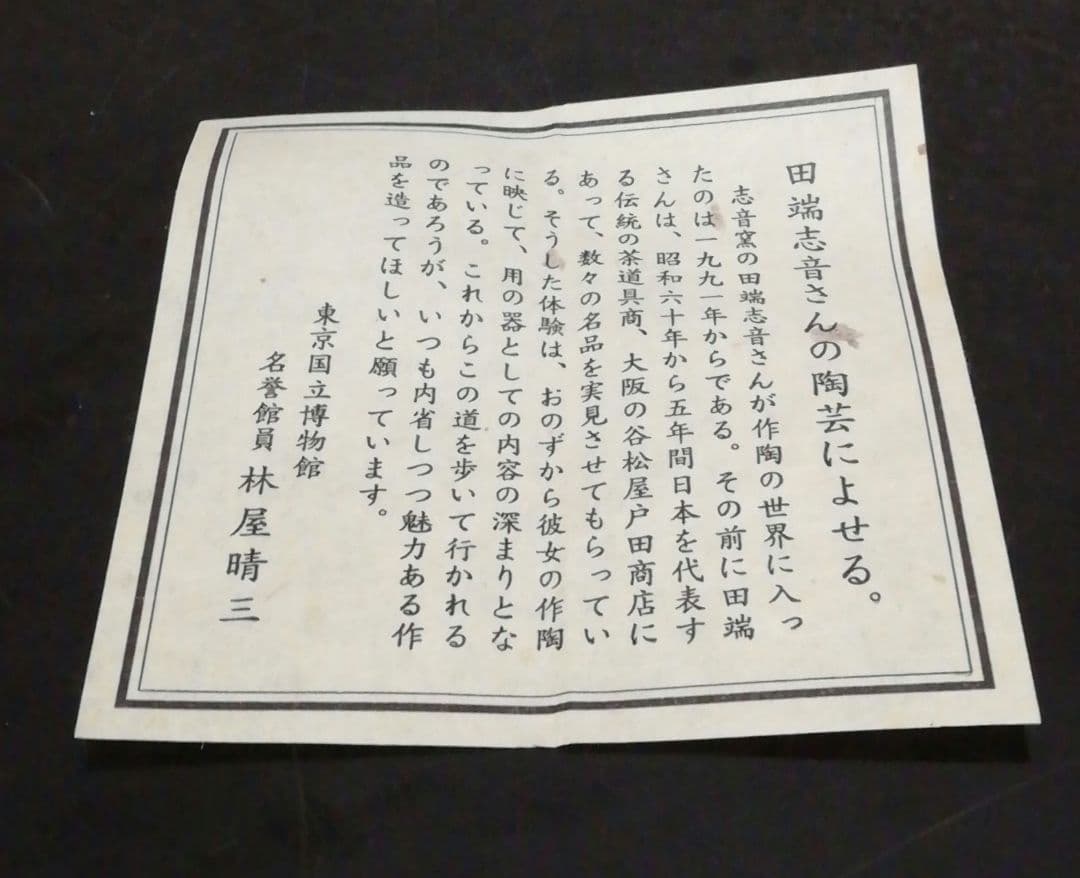 田端志音さんの陶芸によせる。
志音窯の田端志音さんが作陶の世界に入っ
たのは一九九一年からである。その前に田端
さんは、昭和六十年から五年間日本を代表す
る伝統の茶道具商、大阪の谷松屋戸田商店に
あって、数々の名品を実見させてもらってい
る。そうした体験は、おのずから彼女の作陶
に映じて、用の器としての内容の深まりとな
っている。これからこの道を歩いて行かれる
のであろうが、いつも内省しつつ魅力ある作
品を造ってほしいと願っています。
東京国立博物館
名誉館員 林屋晴三